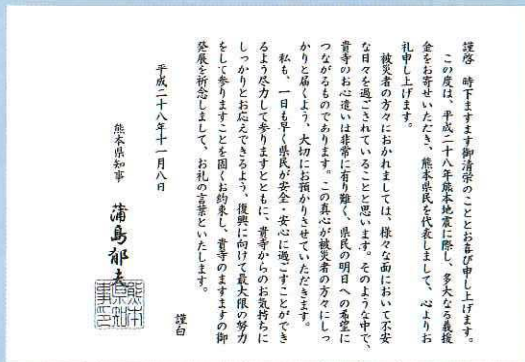 謹啓　時下ますます御清栄のこととお喜び申し上げます。
この度は、平成二十八年熊本地震に際し、多大なる義援
金をお寄せいただき、熊本県民を代表しまして、心よりお
礼申し上げます。
被災者の方々におかれましては、様々な面において不安
な日々を過ごされていることと思います。そのような中で、
貴寺のお心遣いは非常に有り難く、県民の明日への希望に
つながるものであります。この真心が被災者の方々にしっ
かりと届くよう、大切にお預かりさせていただきます。
私も、一日も早く県民が安全・安心に過ごすことができ
るよう尽力して参りますとともに、貴寺からのお気持ちに
しっかりとお応えできるよう、復興に向けて最大限の努力
をして参りますことを固くお約束し、貴寺のますますの御
発展を祈念しまして、お礼の言葉といたします。
謹白
平成二十八年十一月八日
熊本県知事　蒲島郁夫
熊本県知事印